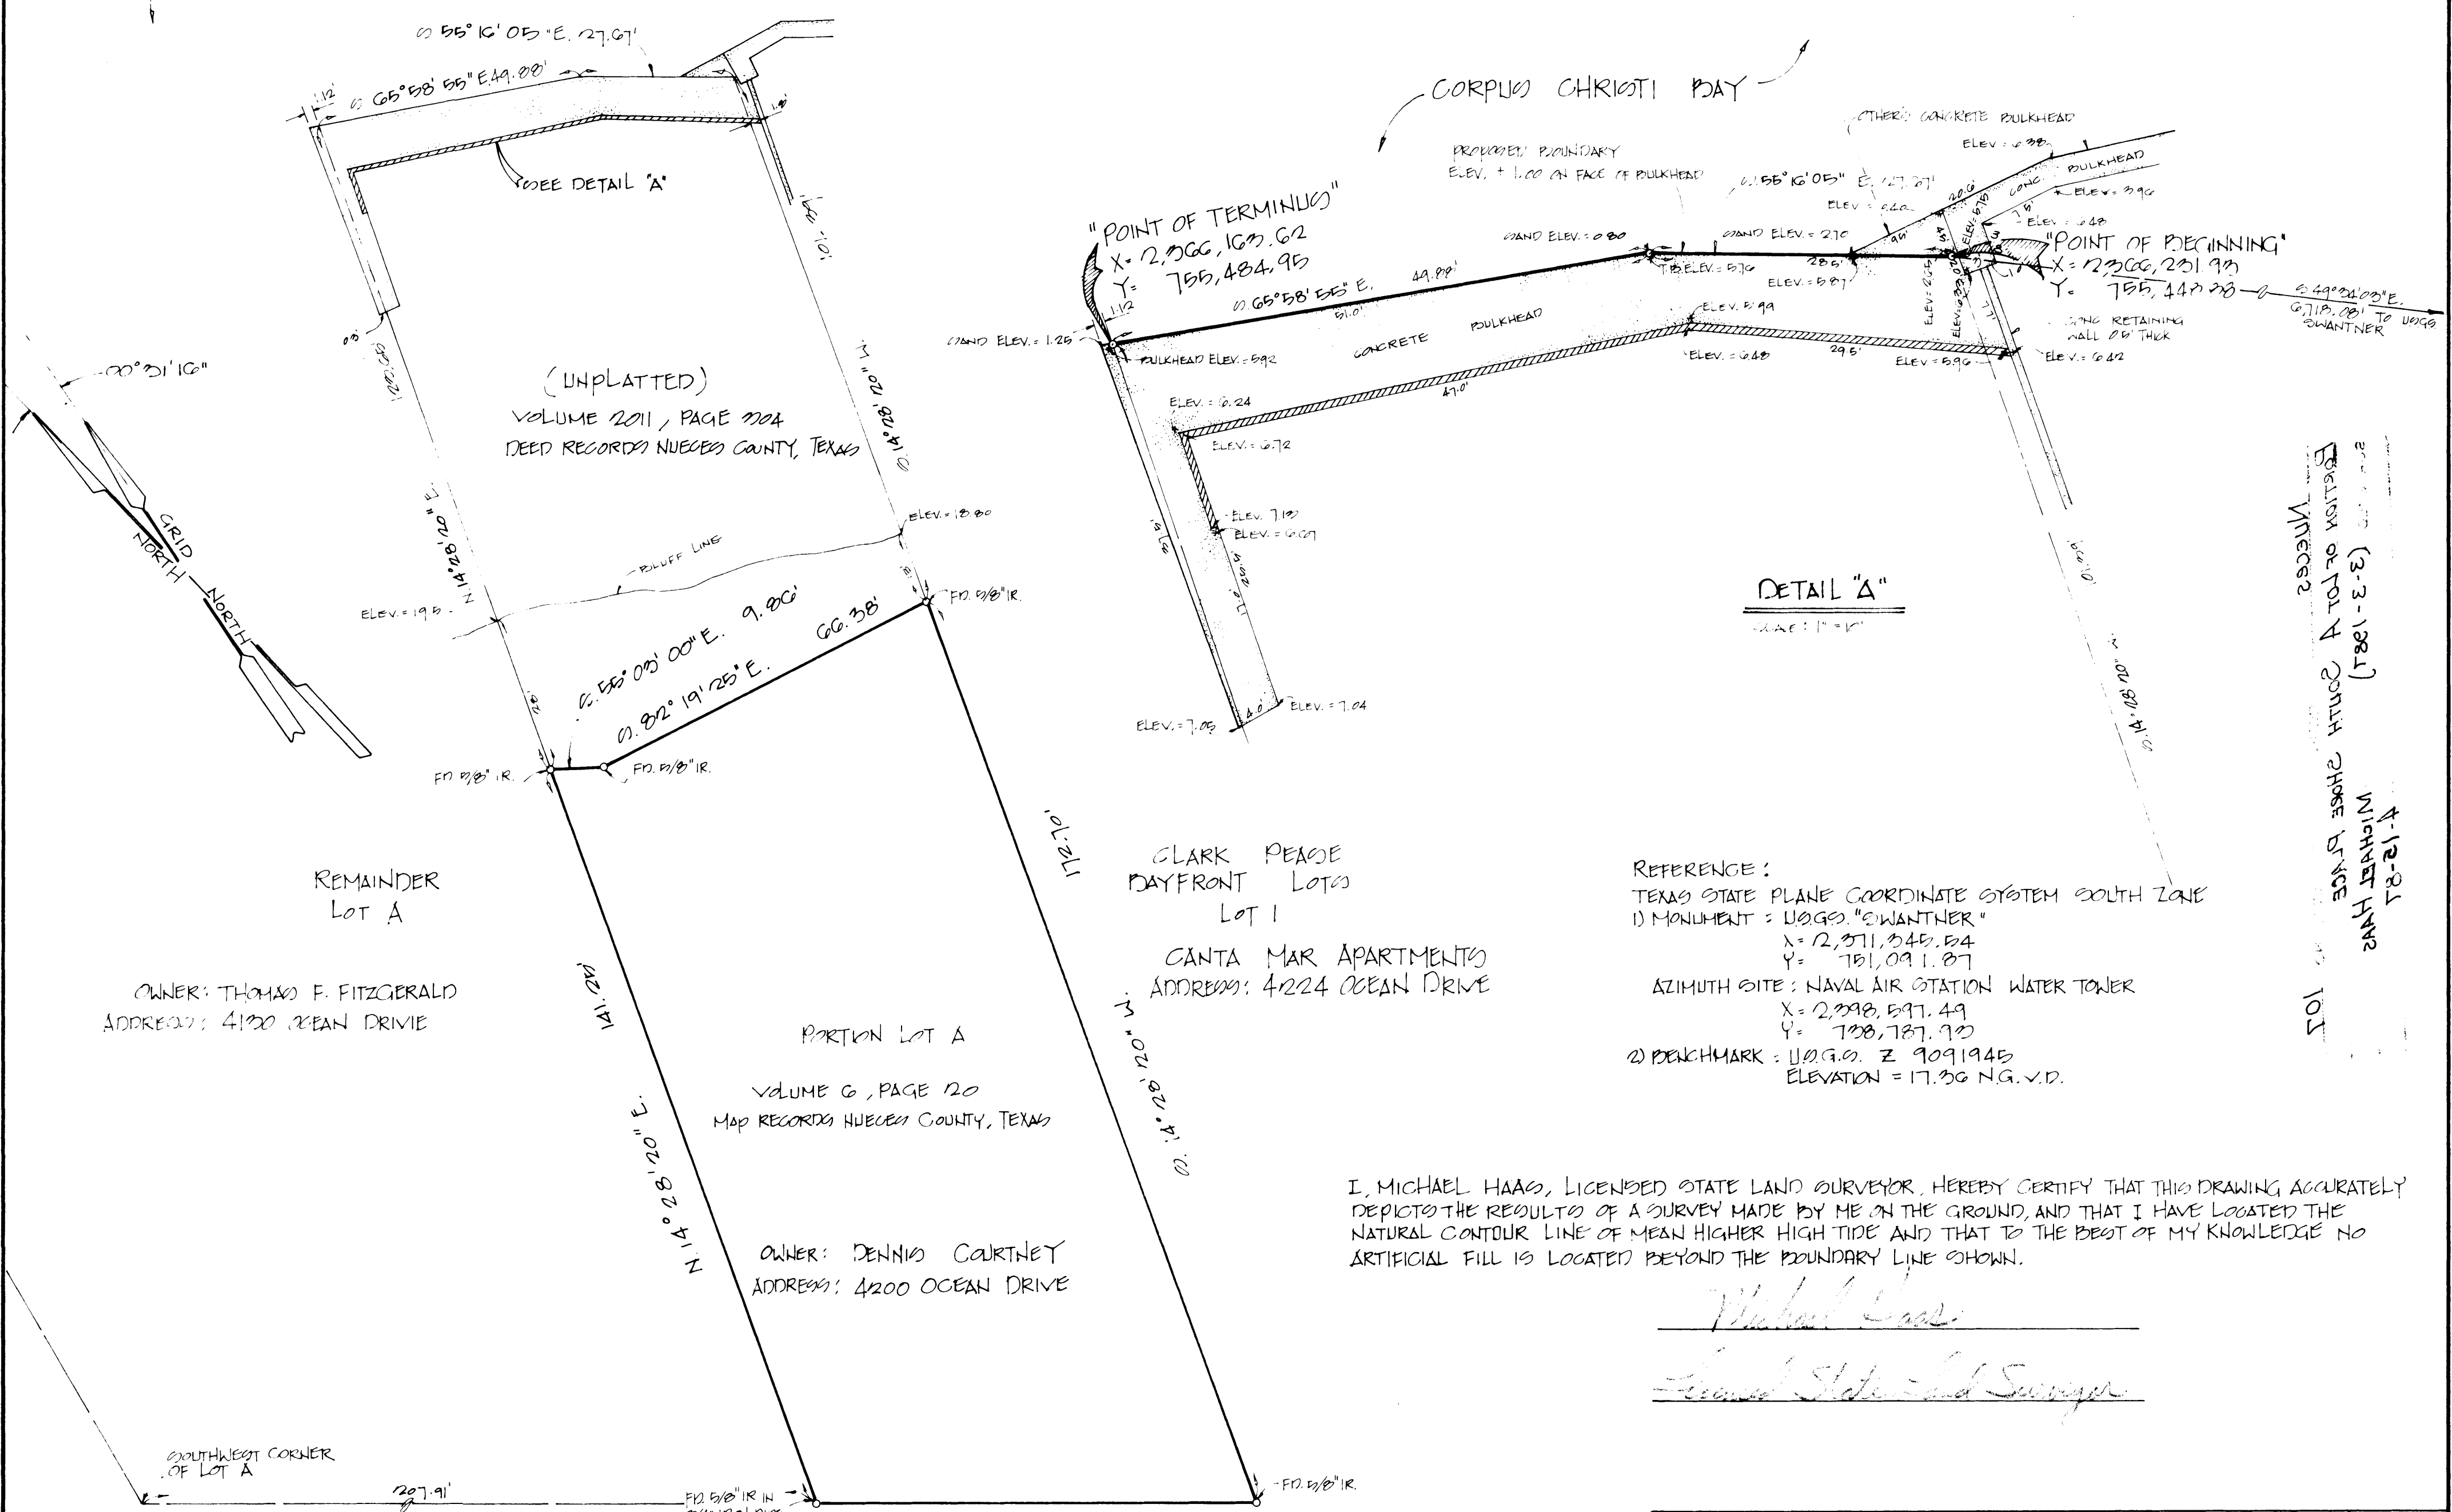 S 55° 16' 05" E. 27.67'
S 65° 58' 55" E. 49.88'
1.12
SEE DETAIL "A"
00° 31' 16"
GRID
NORTH
NORTH
(UNPLATTED)
VOLUME 2011, PAGE 304
DEED RECORDS NUECES COUNTY, TEXAS
N. 14° 28' 20" E.
S. 14° 28' 20" W.
ELEV. = 18.80
BLUFF LINE
ELEV. = 19.5
FD. 5/8" IR.
S. 55° 03' 00" E. 9.86'
S. 82° 19' 25" E. 66.38'
FD. 5/8" IR.
FD. 5/8" IR.
REMAINDER
LOT A
OWNER: THOMAS F. FITZGERALD
ADDRESS: 4130 OCEAN DRIVIE
141.25'
N. 14° 28' 20" E.
PORTION LOT A
VOLUME 6, PAGE 20
MAP RECORDS NUECES COUNTY, TEXAS
OWNER: DENNIS COURTNEY
ADDRESS: 4200 OCEAN DRIVE
172.70'
S. 14° 28' 20" W.
CLARK PEASE
BAYFRONT LOTS
LOT 1
CANTA MAR APARTMENTS
ADDRESS: 4224 OCEAN DRIVE
SOUTHWEST CORNER
OF LOT A
207.91'
FD. 5/8" IR IN
FD. 5/8" IR.
CORPUS CHRISTI BAY
OTHER'S CONCRETE BULKHEAD
PROPOSED BOUNDARY
ELEV. + 1.00 ON FACE OF BULKHEAD
S. 55° 16' 05" E. 27.67'
ELEV. = 6.38
CONC. BULKHEAD
ELEV. = 3.96
ELEV. = 6.48
20.6'
9.5'
7.5'
"POINT OF TERMINUS"
X= 2,366,163.62
Y= 755,484.95
SAND ELEV. = 0.80
SAND ELEV. = 2.70
"POINT OF BEGINNING"
X= 2,366,231.93
Y= 755,448.88
S 49° 34' 03" E.
6,718.08' TO USGS
SWANTNER
T.B. ELEV. = 5.76
28.5'
ELEV. = 5.87
S. 65° 58' 55" E. 49.88'
51.0'
1.12
SAND ELEV. = 1.25
BULKHEAD ELEV. = 5.92
CONCRETE BULKHEAD
ELEV. 5.99
ELEV. = 6.48
29.5'
ELEV. = 5.96
ELEV. = 6.42
CONC RETAINING
WALL 0.5' THICK
47.0'
ELEV. = 6.24
ELEV. = 6.72
ELEV. 7.13
ELEV. = 6.67
37.5'
ELEV. = 7.05
4.0'
ELEV. = 7.04
DETAIL "A"
SCALE: 1" = 10'
S. 14° 28' 20" W.
REFERENCE:
TEXAS STATE PLANE COORDINATE SYSTEM SOUTH ZONE
1) MONUMENT: U.S.G.S. "SWANTNER"
X= 2,371,345.54
Y= 751,091.87
AZIMUTH SITE: NAVAL AIR STATION WATER TOWER
X= 2,398,597.49
Y= 738,787.93
2) BENCHMARK: U.S.G.S. Z 9091945
ELEVATION = 17.36 N.G.V.D.
I, MICHAEL HAAS, LICENSED STATE LAND SURVEYOR, HEREBY CERTIFY THAT THIS DRAWING ACCURATELY
DEPICTS THE RESULTS OF A SURVEY MADE BY ME ON THE GROUND, AND THAT I HAVE LOCATED THE
NATURAL CONTOUR LINE OF MEAN HIGHER HIGH TIDE AND THAT TO THE BEST OF MY KNOWLEDGE NO
ARTIFICIAL FILL IS LOCATED BEYOND THE BOUNDARY LINE SHOWN.
Michael Haas
Licensed State Land Surveyor
4-15-87
MICHAEL HAAS
(3-3-1987)
PORTION OF LOT A SOUTH SHORE PLACE
NUECES
107